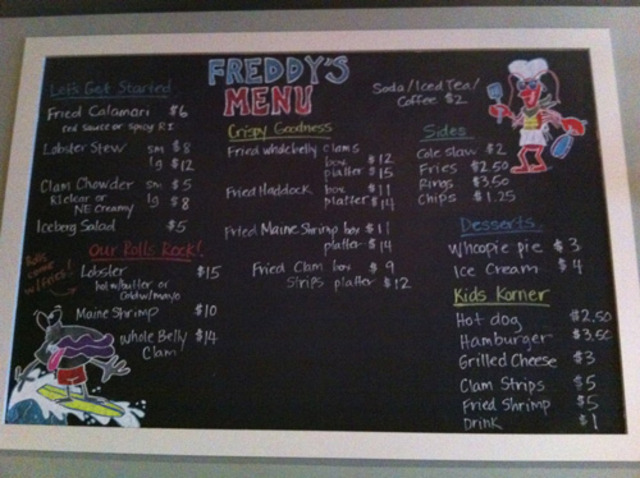 FREDDY'S
MENU
Let's Get Started
Fried Calamari $6
red sauce or spicy R.I.
Lobster Stew sm $8
lg $12
Clam Chowder sm $5
RI clear or lg $8
NE Creamy
Iceberg Salad $5
Our Rolls Rock!
Rolls come w/fries!
Lobster $15
hot w/butter or
cold w/mayo
Maine Shrimp $10
Whole Belly $14
Clam
Crispy Goodness
Fried whole belly clams
box $12
platter $15
Fried Haddock box $11
platter $14
Fried Maine Shrimp box $11
platter $14
Fried Clam box $9
Strips platter $12
Soda/Iced Tea/
Coffee $2
Sides
Cole slaw $2
Fries $2.50
Rings $3.50
Chips $1.25
Desserts
Whoopie pie $3
Ice Cream $4
Kids Korner
Hot dog $2.50
Hamburger $3.50
Grilled Cheese $3
Clam Strips $5
Fried Shrimp $5
Drink $1